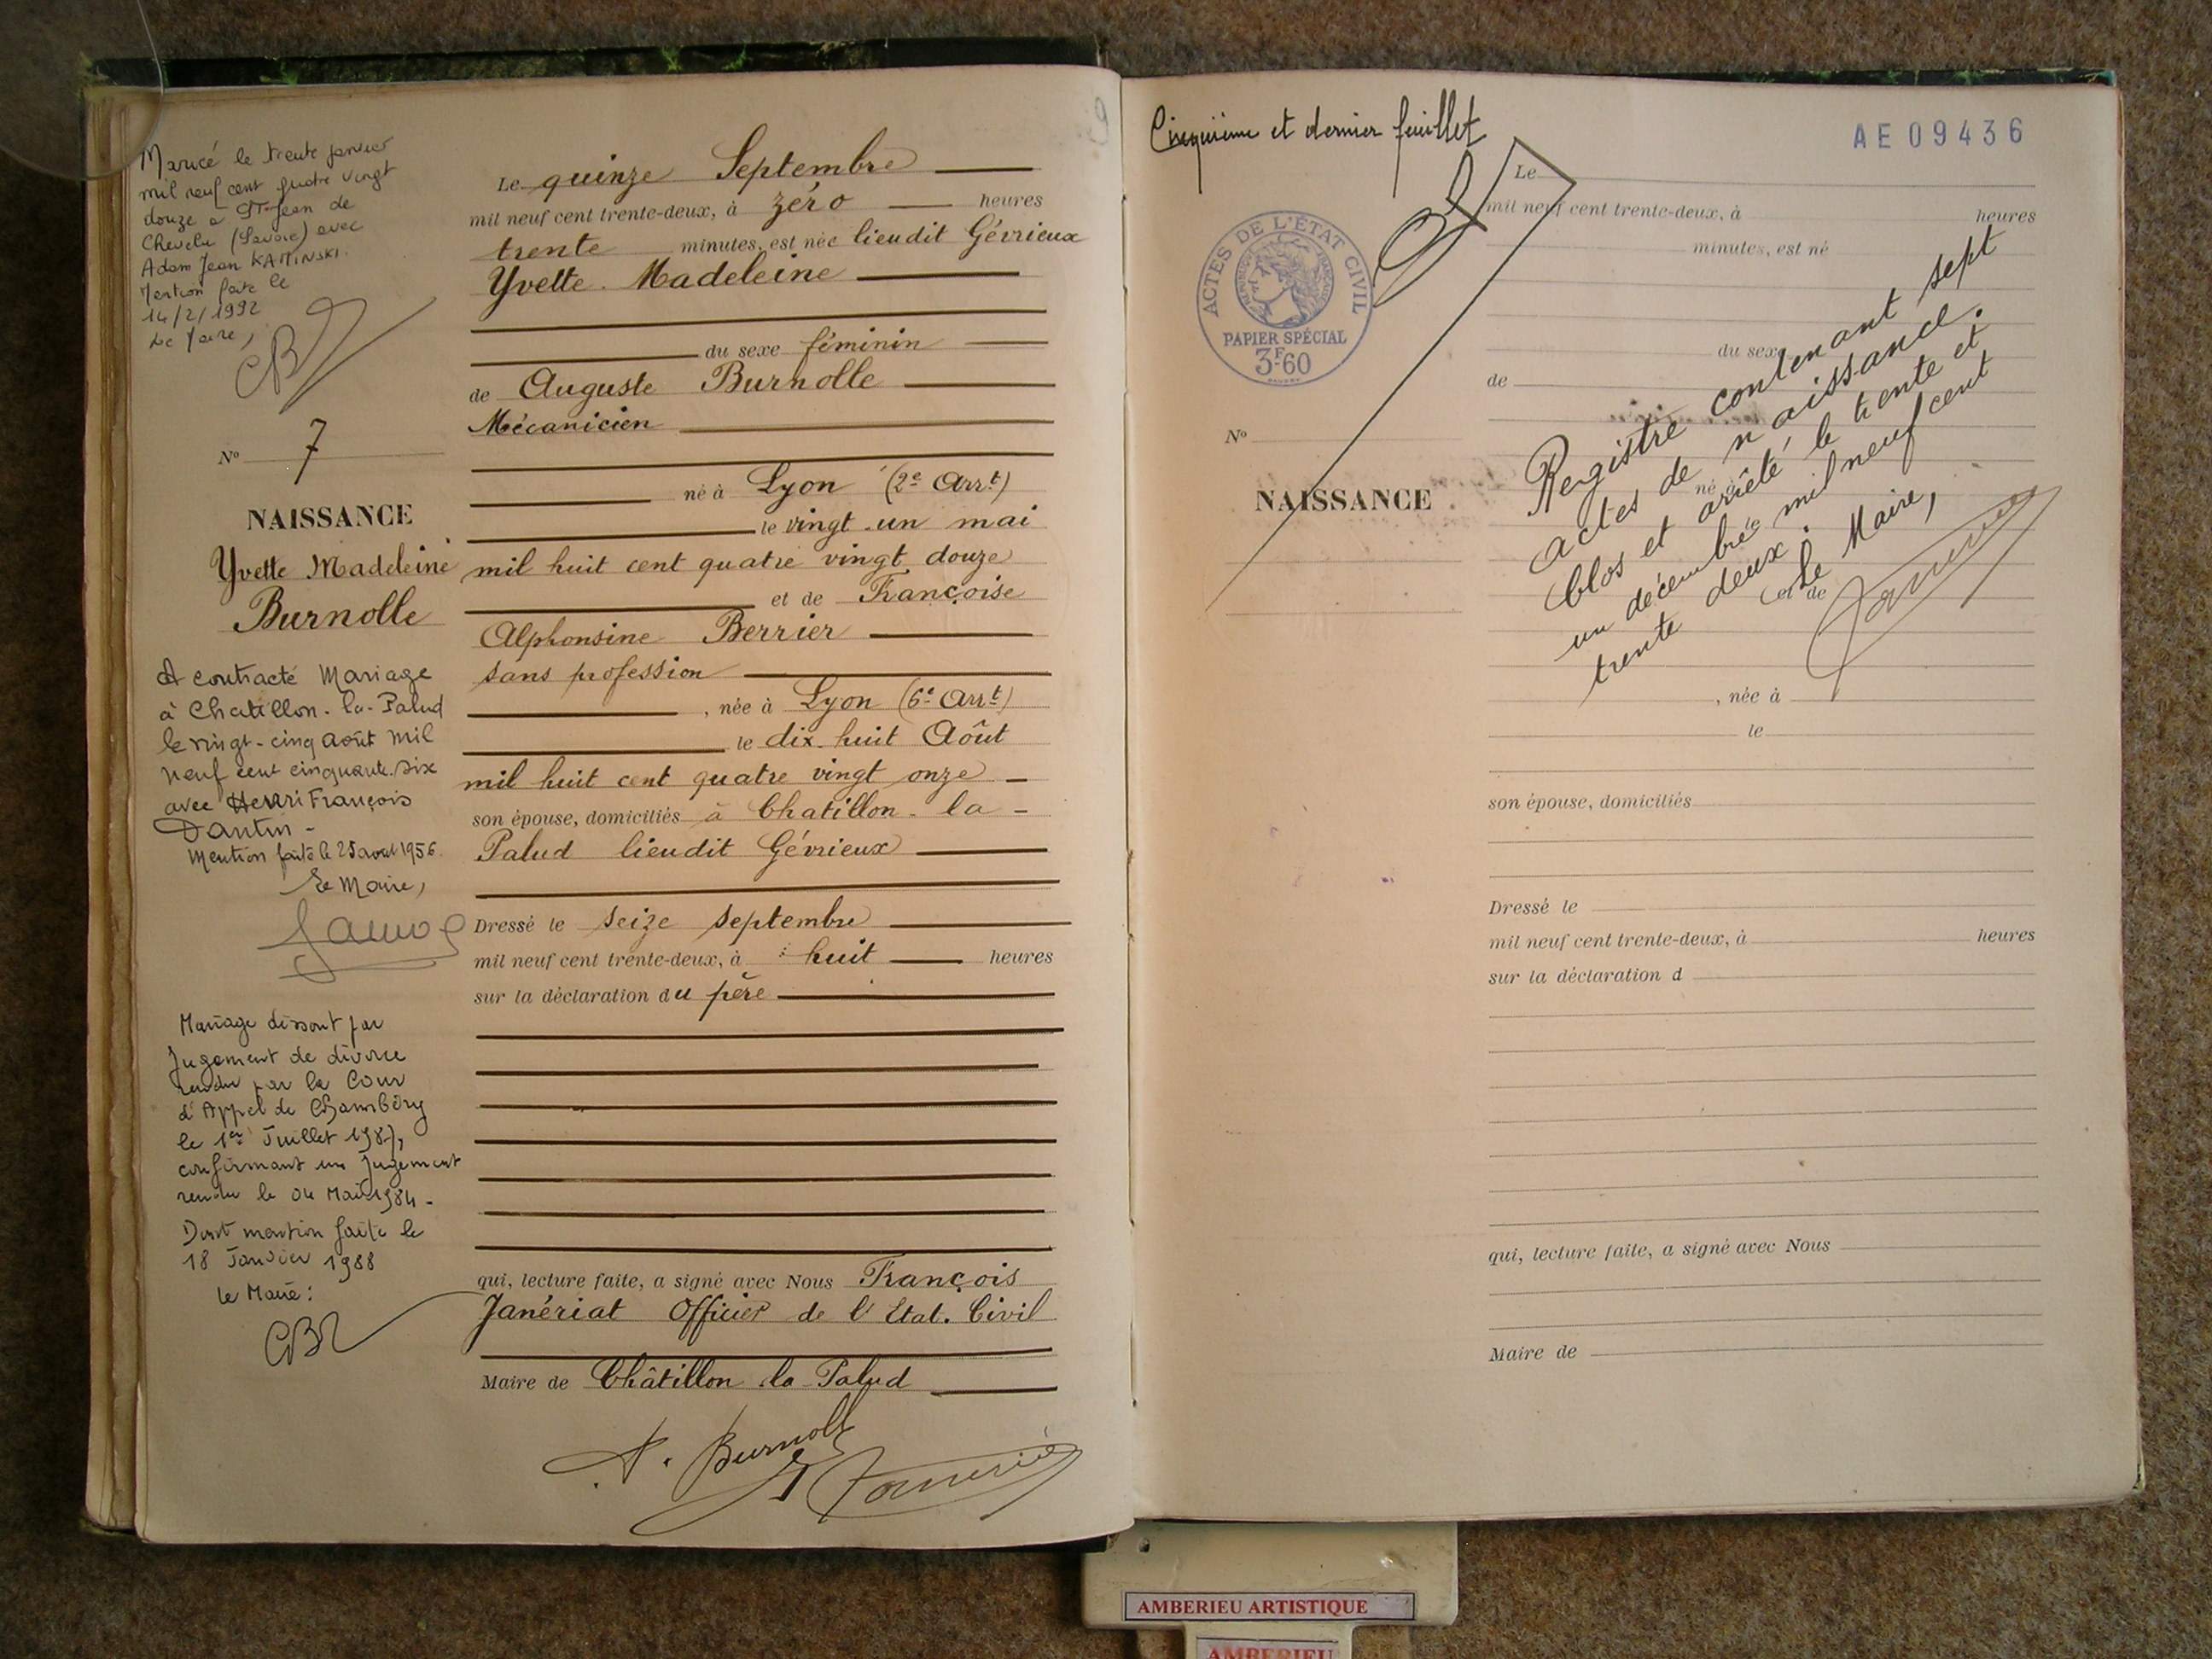 Mariée le trente janvier
mil neuf cent quatre vingt
douze à St Jean de
Chevelu (Savoie) avec
Adam Jean KAMINSKI.
Mention faite le
14/2/1992
Le Maire,
No 7
NAISSANCE
Yvette Madeleine
Burnolle
A contracté Mariage
à Chatillon-la-Palud
le vingt-cinq août mil
neuf cent cinquante-six
avec Henri François
Dantin -
Mention faite le 25 août 1956.
Le Maire,
Mariage dissout par
Jugement de divorce
rendu par la Cour
d'Appel de Chambéry
le 1er Juillet 1987,
confirmant un Jugement
rendu le 04 Mai 1984 -
Dont mention faite le
18 Janvier 1988
le Maire :
Le quinze Septembre
mil neuf cent trente-deux, à zéro heures
trente minutes, est née lieudit Gévrieux
Yvette Madeleine
du sexe féminin
de Auguste Burnolle
Mécanicien
né à Lyon (2e Arrt)
le vingt-un mai
mil huit cent quatre vingt douze
et de Françoise
Alphonsine Berrier
sans profession
, née à Lyon (6e Arrt)
le dix-huit Août
mil huit cent quatre vingt onze
son épouse, domiciliés à Chatillon-la-
Palud lieudit Gévrieux
Dressé le seize septembre
mil neuf cent trente-deux, à huit heures
sur la déclaration du père
qui, lecture faite, a signé avec Nous François
Janériat Officier de l'Etat-Civil
Maire de Châtillon la Palud
A. Burnolle
Cinquième et dernier feuillet
AE09436
ACTES DE L'ÉTAT CIVIL
RÉPUBLIQUE FRANÇAISE
PAPIER SPÉCIAL
3F60
No
NAISSANCE
Le
mil neuf cent trente-deux, à heures
minutes, est né
du sexe
de
né à
le
et de
, née à
le
son épouse, domiciliés
Dressé le
mil neuf cent trente-deux, à heures
sur la déclaration d
qui, lecture faite, a signé avec Nous
Maire de
Registre contenant sept
actes de naissance.
Clos et arrêté le trente et
un décembre mil neuf cent
trente deux.
Le Maire,
AMBERIEU ARTISTIQUE
AMBERIEU